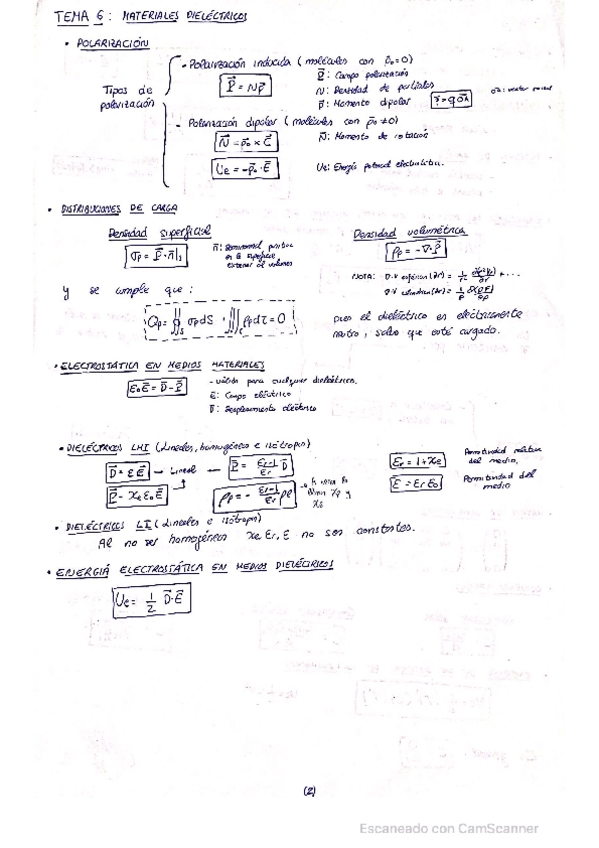 TEMA 6: MATERIALES DIELÉCTRICOS
• POLARIZACIÓN
Tipos de polarización
- Polarización inducida (moléculas con p₀=0)
P⃗ = Np⃗
P⃗: Campo polarización
N: Densidad de partículas
p⃗: Momento dipolar
- Polarización dipolar (moléculas con p⃗₀≠0)
N⃗ = p⃗₀ × E⃗
N⃗: Momento de rotación
Ue = -p⃗₀·E⃗
Ue: Energía potencial electrostática.
• DISTRIBUCIONES DE CARGA
Densidad superficial
σp = P⃗·n⃗|s
n⃗:
en la superficie
exterior al volumen
Densidad volumétrica
ρp = -∇·P⃗
NOTA:
y se cumple que:
Qp = ∯s σp dS + ∭ ρp dτ = 0
pues el dieléctrico es eléctricamente
neutro, salvo que esté cargado.
• ELECTROSTÁTICA EN MEDIOS MATERIALES
ε₀E⃗ = D⃗ - P⃗
- válida para cualquier dieléctrico.
E⃗: Campo eléctrico
D⃗: Desplazamiento eléctrico
• DIELÉCTRICOS LHI (Lineales, homogéneos e isótropos)
D⃗ = εE⃗ — Lineal — P⃗ = εr-1/εr D⃗
P⃗ = χe ε₀E⃗
ρp = - εr-1/εr ρl
εr = 1+χe
Permitividad relativa
del medio,
ε = εr ε₀
Permitividad del
medio
• DIELÉCTRICOS LI (Lineales e isótropos)
Al no ser homogéneos χe, εr, ε no son constantes.
• ENERGIÁ ELECTROSTÁTICA EN MEDIOS DIELÉCTRICOS
Ue = 1/2 D⃗·E⃗
(2)
Escaneado con CamScanner